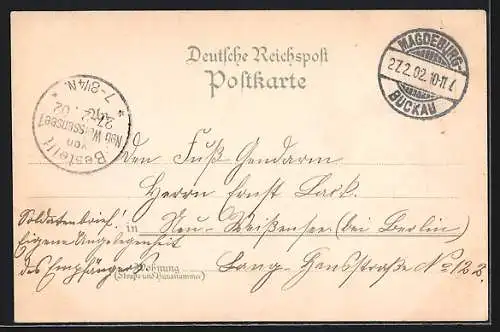 Deutsche Reichspost
Postkarte
MAGDEBURG-
27.2.02.10-11.V.
BUCKAU
Bestellt
von
Neu Weissensee 1
27. 2. 02
7-8 1/4 N.
Den Fuß-Gendarm
Herrn Ernst Lask.
in Neu-Weißensee (bei Berlin)
Soldatenbrief!
Eigene Angelegenheit
des Empfängers
Wohnung
(Straße und Hausnummer)
Lang-Hansstraße No 122.